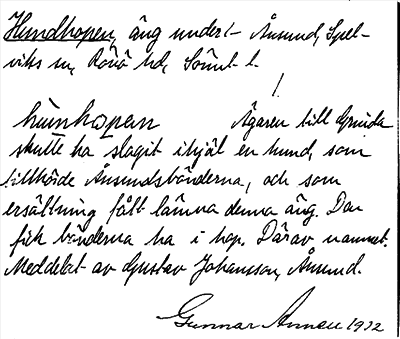 Hundhopen, äng under Ånsund, Spel-
viks sn, Rönö hd, Söml. l.
hùnhọpan Ägaren till Grinda
skulle ha slagit ihjäl en hund, som
tillhörde Ånsundsbönderna, och som
ersättning fått lämna denna äng. Den
fick bönderna ha i hop. Därav namnet.
Meddelat av Gustav Johansson, Ånsund.
Gunnar 1932